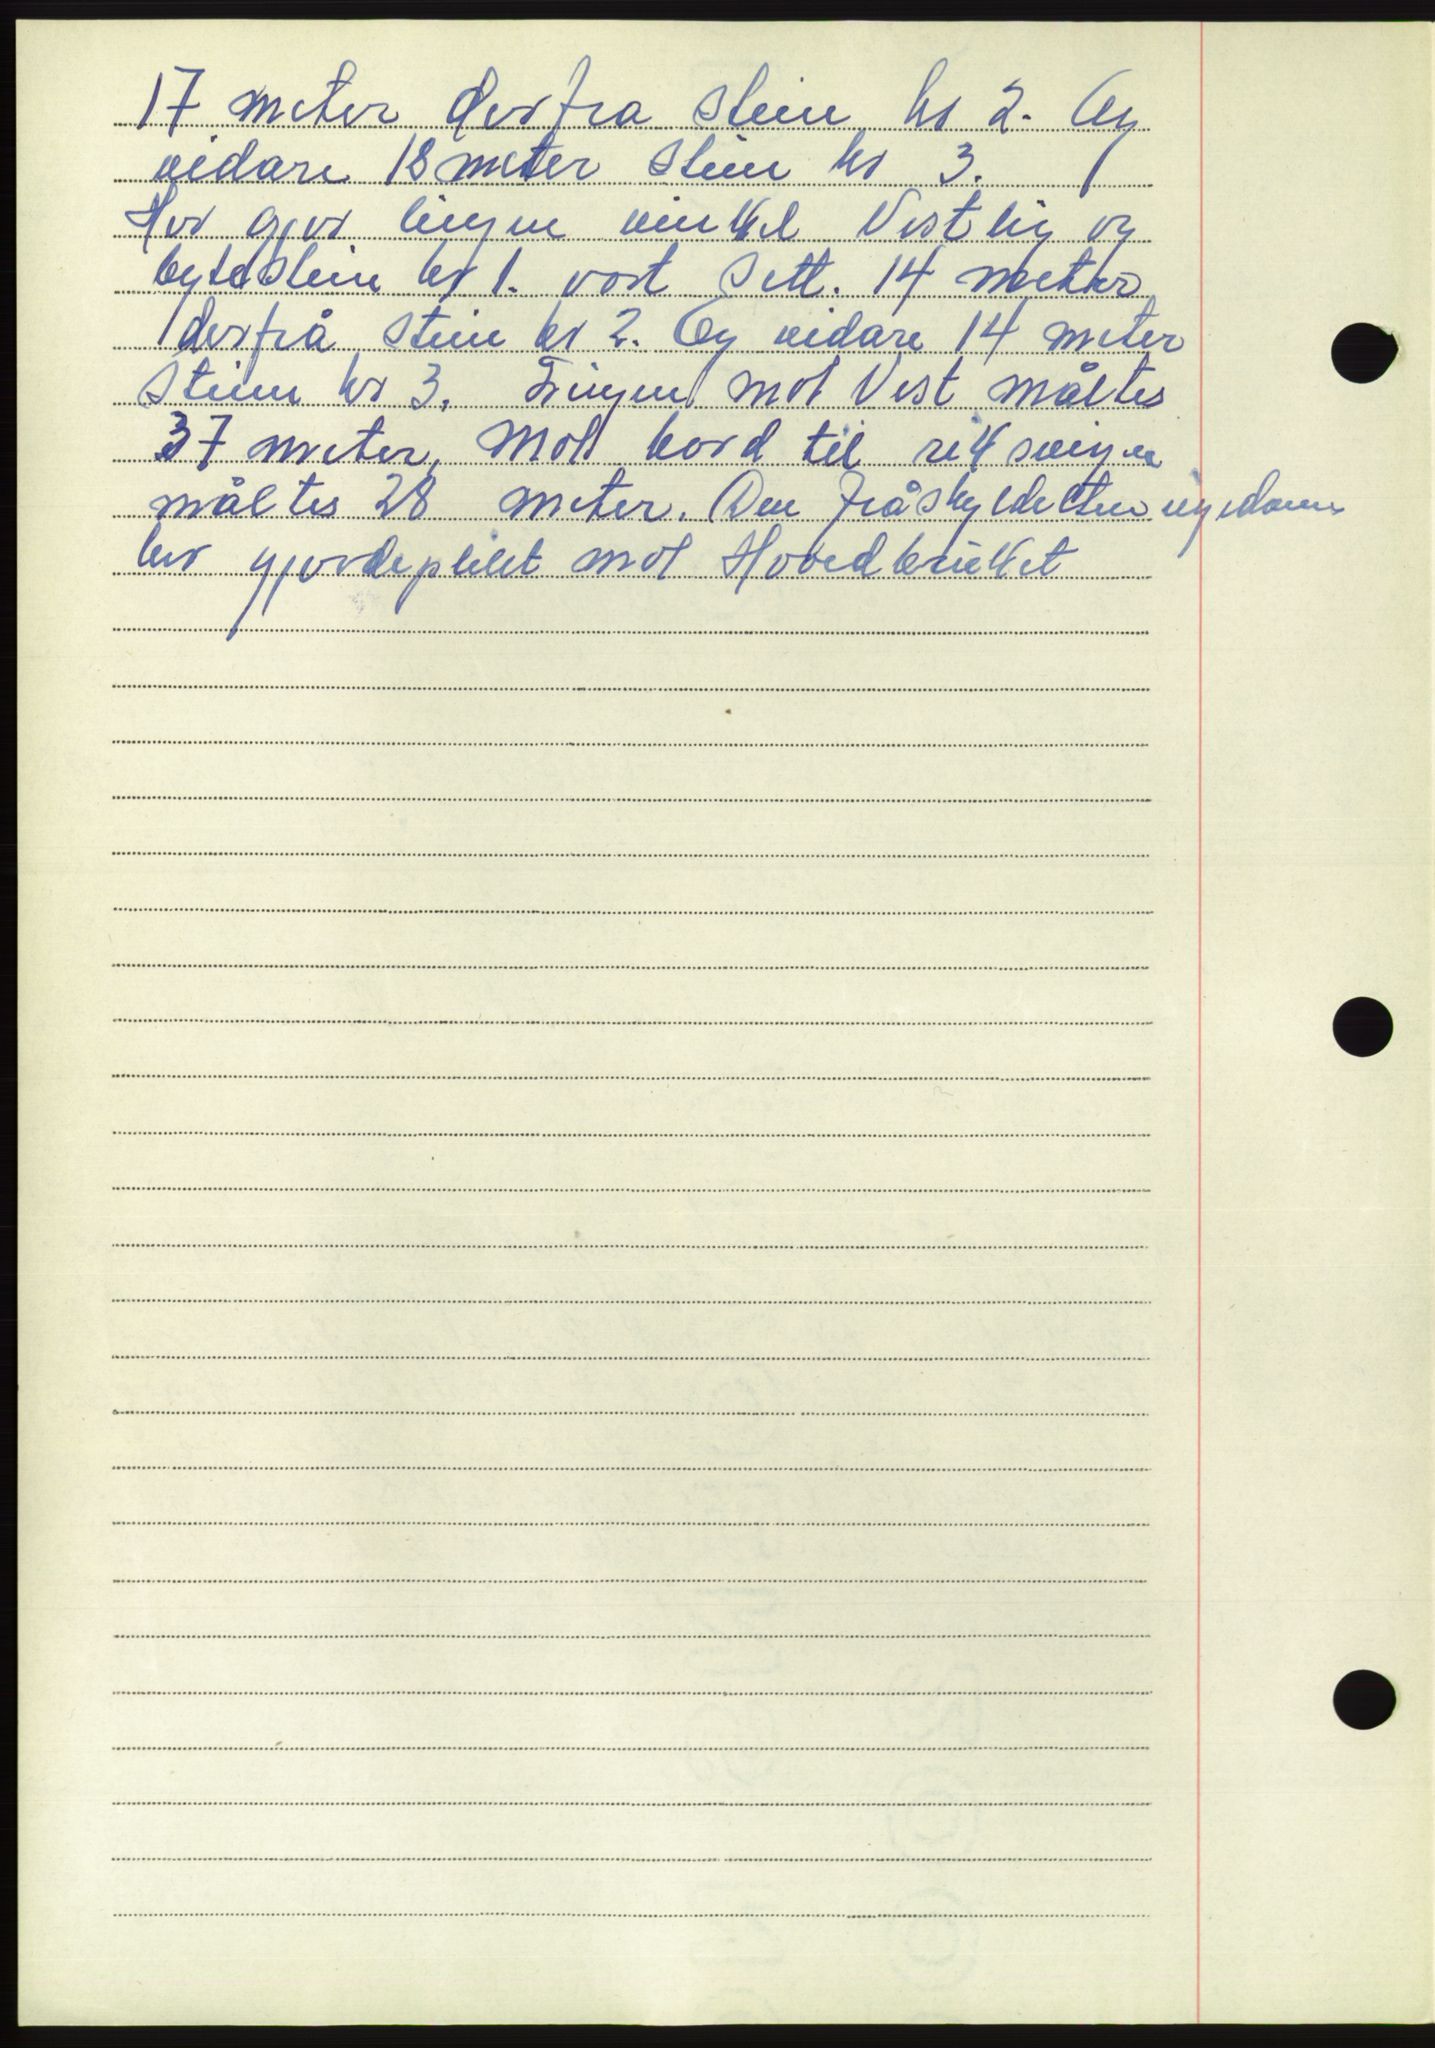 17 meter derfra stein nr 2. Og
vidare 18 meter stein nr 3.
Her gjer lingen vinkel Vestlig og
bytestein nr 1. vart sett. 14 meter
derfrå stein nr 2. Og vidare 14 meter
Stein nr 3. Lingen mot Vest måltes
37 meter, mot nord til riksveigen
måltes 28 meter. Den fråskyldette eigedom
har gjerdeplikt mot Hovedbruket